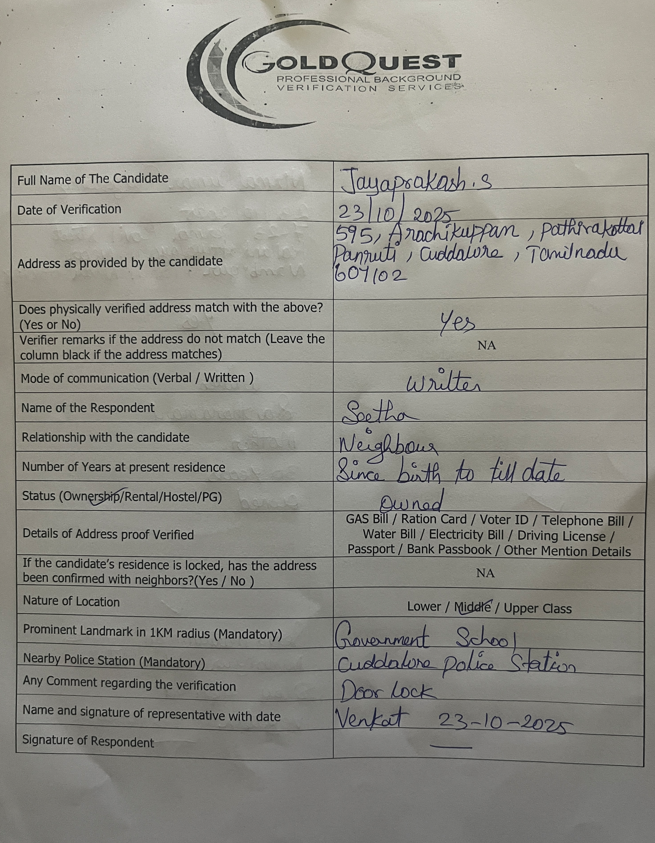 GOLDQUEST
PROFESSIONAL BACKGROUND
VERIFICATION SERVICES
Full Name of The Candidate
Jayaprakash.S
Date of Verification
23/10/2025
Address as provided by the candidate
595, Arachikuppan, Pathirakottai
Panruti, Cuddalore, Tamilnadu
607102
Does physically verified address match with the above?
(Yes or No)
Yes
Verifier remarks if the address do not match (Leave the
column black if the address matches)
NA
Mode of communication (Verbal / Written )
Written
Name of the Respondent
Seetha
Relationship with the candidate
Neighbour
Number of Years at present residence
Since birth to till date
Status (Ownership/Rental/Hostel/PG)
Owned
Details of Address proof Verified
GAS Bill / Ration Card / Voter ID / Telephone Bill /
Water Bill / Electricity Bill / Driving License /
Passport / Bank Passbook / Other Mention Details
If the candidate's residence is locked, has the address
been confirmed with neighbors?(Yes / No )
NA
Nature of Location
Lower / Middle / Upper Class
Prominent Landmark in 1KM radius (Mandatory)
Government School
Nearby Police Station (Mandatory)
Cuddalore Police Station
Any Comment regarding the verification
Door Lock
Name and signature of representative with date
Venkat 23-10-2025
Signature of Respondent